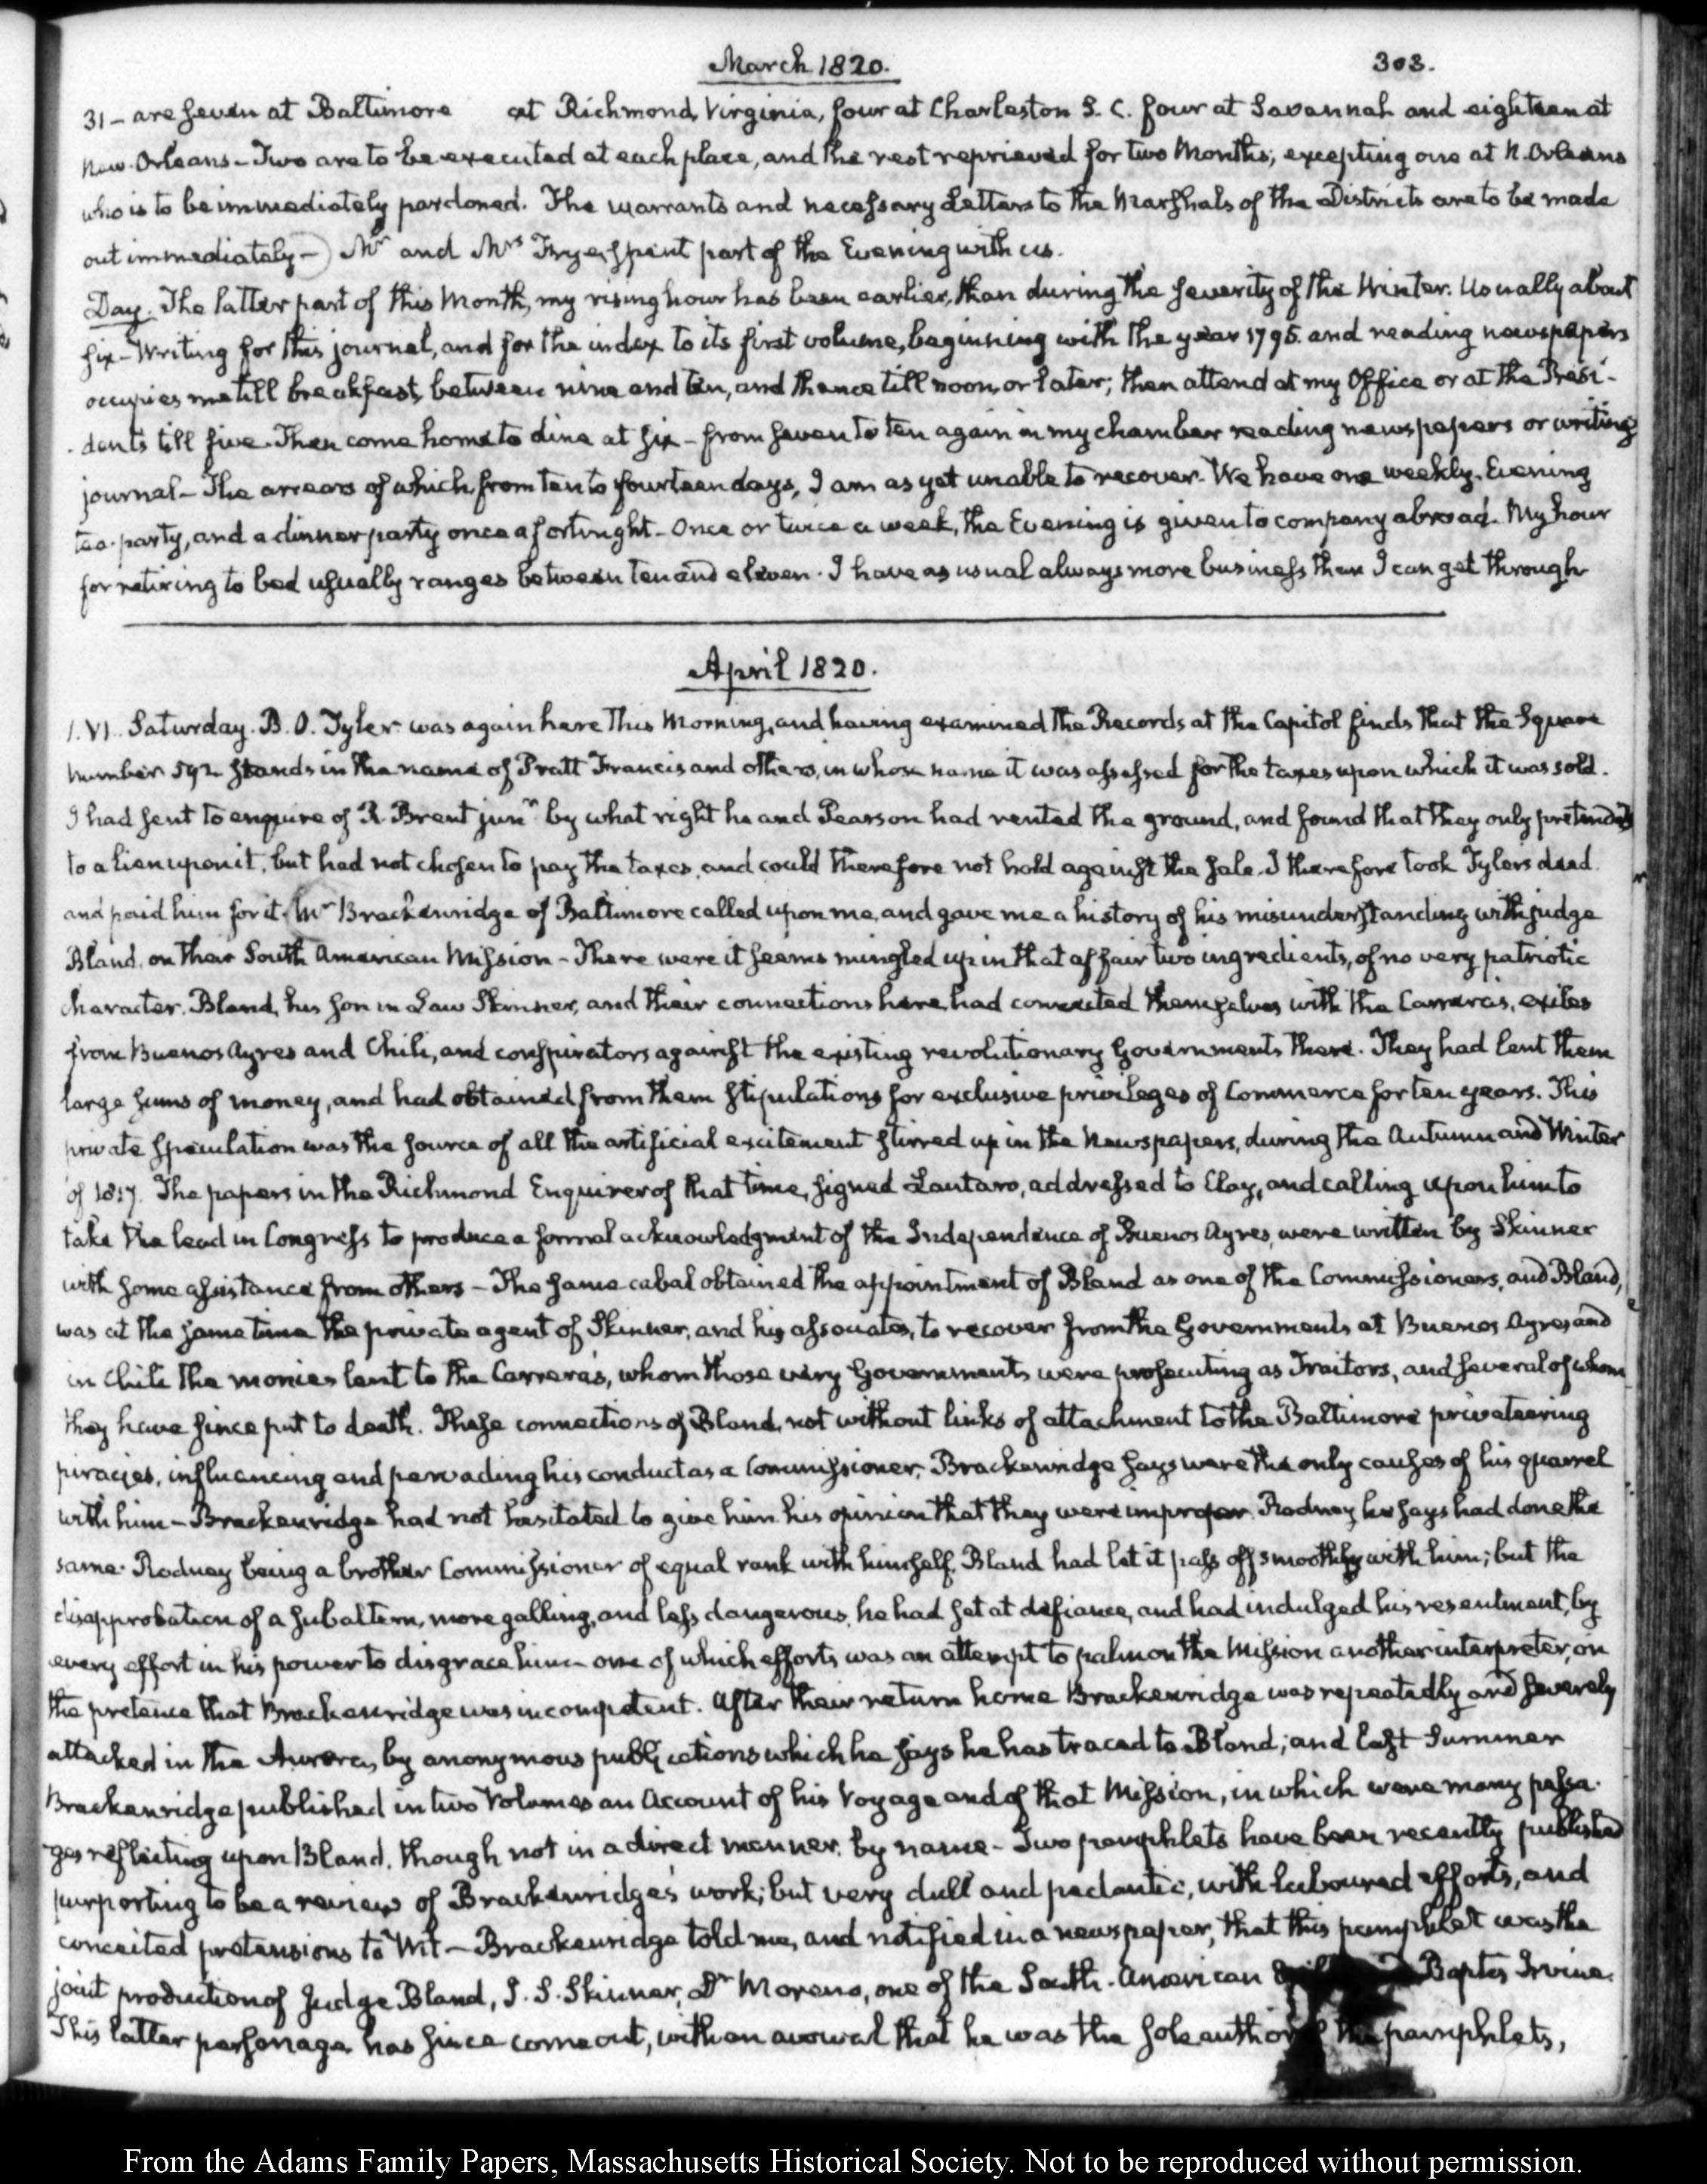 March 1820.
303.
31 - are seven at Baltimore at Richmond, Virginia, four at Charleston S. C. four at Savannah and eighteen at
New-Orleans - Two are to be executed at each place, and the rest reprieved for two Months; excepting one at N. Orleans
who is to be immediately pardoned. The warrants and necessary Letters to the Marshals of the Districts are to be made
out immediately - Mr and Mrs Frye spent part of the Evening with us.
Day. The latter part of this Month, my rising hour has been earlier, than during the severity of the Winter. Usually about
six - Writing for this journal, and for the index to its first volume, beginning with the year 1795. and reading newspapers
occupies me till breakfast, between nine and ten, and thence till noon, or later; then attend at my Office or at the Presi-
dents till five. Then come home to dine at six - from seven to ten again in my chamber reading newspapers or writing
journal - The arrears of which, from ten to fourteen days, I am as yet unable to recover. We have one weekly Evening
tea-party, and a dinner party once a fortnight - Once or twice a week, the Evening is given to company abroad. My hour
for retiring to bed usually ranges between ten and eleven. I have as usual always more business than I can get through
April 1820.
1. VI. Saturday. B. O. Tyler was again here this Morning, and having examined the Records at the Capitol finds that the Square
number 592 stands in the name of Pratt Francis and others, in whose name it was assessed for the taxes upon which it was sold.
I had sent to enquire of R. Brent junr by what right he and Pearson had rented the ground, and found that they only pretended
to a lien upon it, but had not chosen to pay the taxes, and could therefore not hold against the sale. I therefore took Tyler's deed
and paid him for it. Mr Brackenridge of Baltimore called upon me, and gave me a history of his misunderstanding with judge
Bland, on their South American Mission - There were it seems mingled up in that affair two ingredients, of no very patriotic
character. Bland, his son in Law Skinner, and their connections here, had connected themselves with the Carrera's, exiles
from Buenos Ayres and Chili, and conspirators against the existing revolutionary Governments there. They had lent them
large sums of money, and had obtained from them stipulations for exclusive privileges of Commerce for ten years. This
private speculation was the source of all the artificial excitement stirred up in the Newspapers, during the Autumn and Winter
of 1817. The papers in the Richmond Enquirer of that time, signed Lautaro, addressed to Clay, and calling upon him to
take the lead in Congress to produce a formal acknowledgment of the Independence of Buenos Ayres, were written by Skinner
with some assistance from others - The same cabal obtained the appointment of Bland as one of the Commissioners, and Bland,
was at the same time the private agent of Skinner, and his associates, to recover from the Governments at Buenos Ayres and
in Chili the monies lent to the Carrera's, whom those very Governments were prosecuting as Traitors, and several of whom
they have since put to death. These connections of Bland, not without links of attachment to the Baltimore privateering
piracies, influencing and pervading his conduct as a Commissioner, Brackenridge says were the only causes of his quarrel
with him - Brackenridge had not hesitated to give him his opinion that they were improper. Rodney he says had done the
same. Rodney being a brother Commissioner of equal rank with himself, Bland had let it pass off smoothly with him; but the
disapprobation of a subaltern, more galling, and less dangerous, he had set at defiance, and had indulged his resentment, by
every effort in his power to disgrace him - one of which efforts was an attempt to palm on the Mission another interpreter, on
the pretence that Brackenridge was incompetent. After their return home Brackenridge was repeatedly and severely
attacked in the Aurora, by anonymous publications which he says he has traced to Bland; and last Summer
Brackenridge published in two Volumes an Account of his Voyage and of that Mission, in which were many passa-
ges reflecting upon Bland, though not in a direct manner, by name - Two pamphlets have been recently published
purporting to be a review of Brackenridge's work; but very dull and pedantic, with laboured efforts, and
conceited pretensions to Wit - Brackenridge told me, and notified in a newspaper, that this pamphlet was the
joint production of Judge Bland, J. S. Skinner, Dr Moreno, one of the South-American Baptis Irvine.
This latter personage has since come out, with an avowal that he was the sole author of the pamphlets,
From the Adams Family Papers, Massachusetts Historical Society. Not to be reproduced without permission.